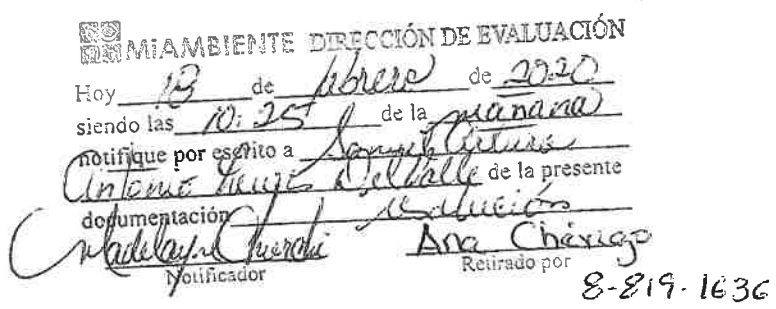 MiAMBIENTE DIRECCIÓN DE EVALUACIÓN
Hoy 13 de febrero de 2020
siendo las 10:25 de la mañana
notifique por escrito a Samuel Arturo
Antonio DelValle de la presente
documentación resolución
Ana Cháviago
Notificador Retirado por
8-819-1636